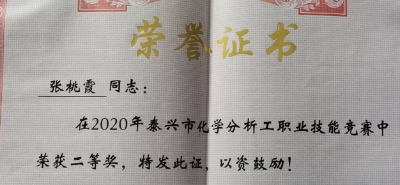 荣誉证书
张桃霞 同志：
在2020年泰兴市化学分析工职业技能竞赛中
荣获二等奖，特发此证，以资鼓励！